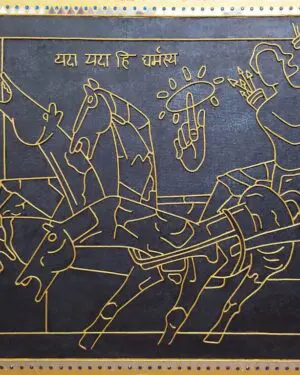 यदा यदा हि धर्मस्य